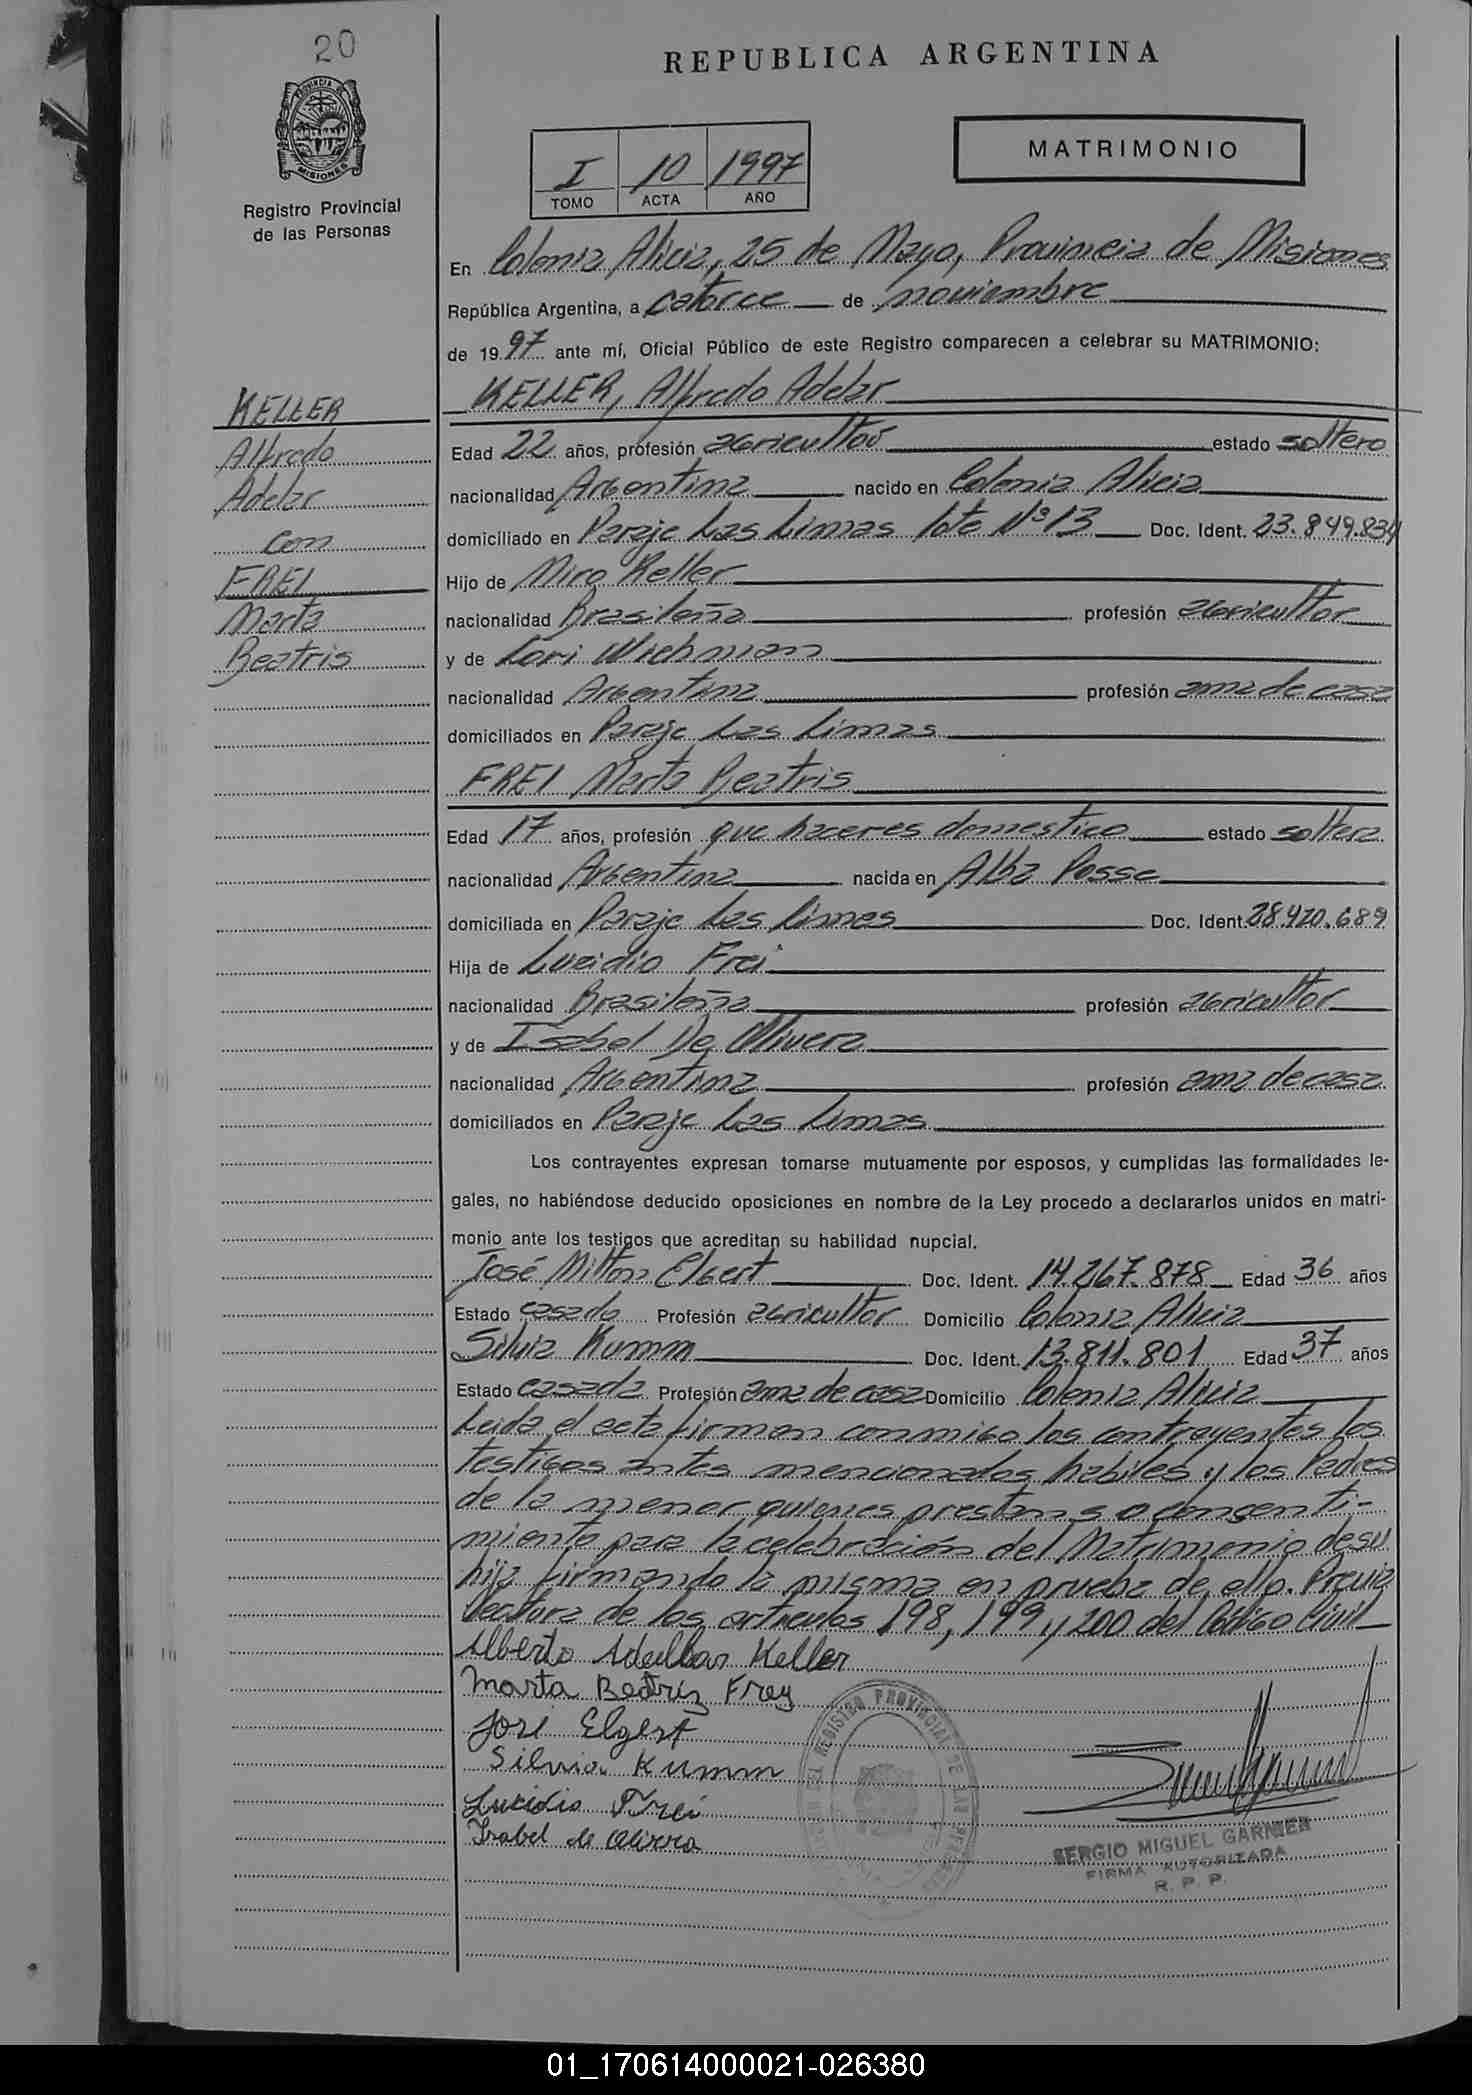 20
REPUBLICA ARGENTINA
PROVINCIA DE
MISIONES
Registro Provincial
de las Personas
MATRIMONIO
I 10 1997
TOMO ACTA AÑO
En Colonia Alicia, 25 de Mayo, Provincia de Misiones
República Argentina, a catorce de noviembre
de 19 97 ante mí, Oficial Público de este Registro comparecen a celebrar su MATRIMONIO:
KELLER
Alfredo
Adelar
con
FREI
Marta
Beatris
KELLER, Alfredo Adelar
Edad 22 años, profesión agricultor estado soltero
nacionalidad Argentina nacido en Colonia Alicia
domiciliado en Paraje Las Limas lote Nº 13 Doc. Ident. 23.849.834
Hijo de Miro Keller
nacionalidad Brasileña profesión agricultor
y de Lori Wichman
nacionalidad Argentina profesión ama de casa
domiciliados en Paraje Las Limas
FREI Marta Beatris
Edad 17 años, profesión que haceres domestico estado soltera
nacionalidad Argentina nacida en Alba Posse
domiciliada en Paraje Las Limas Doc. Ident. 28.420.689
Hija de Lucidio Frei
nacionalidad Brasileña profesión agricultor
y de Isabel De Olivera
nacionalidad Argentina profesión ama de casa
domiciliados en Paraje Las Limas
Los contrayentes expresan tomarse mutuamente por esposos, y cumplidas las formalidades le-
gales, no habiéndose deducido oposiciones en nombre de la Ley procedo a declararlos unidos en matri-
monio ante los testigos que acreditan su habilidad nupcial.
José Milton Elgert Doc. Ident. 14.267.878 Edad 36 años
Estado casado Profesión agricultor Domicilio Colonia Alicia
Silvia Kumm Doc. Ident. 13.811.801 Edad 37 años
Estado casada Profesión ama de casa Domicilio Colonia Alicia
Leida el acta firman conmigo los contrayentes los
testigos antes mencionados habiles y los Padres
de la menor quienes prestan su consenti-
miento para la celebración del Matrimonio de su
hija firmando la misma en prueba de ello. Previa
lectura de los articulos 198, 199 y 200 del Codigo Civil
Alberto Adelbar Keller
Marta Beatriz Frey
José Elgert
Silvia Kumm
Lucidio Frei
Isabel de Olivera
REGISTRO PROVINCIAL DE LAS PERSONAS
SERGIO MIGUEL GARNIER
FIRMA AUTORIZADA
R. P. P.
01_170614000021-026380